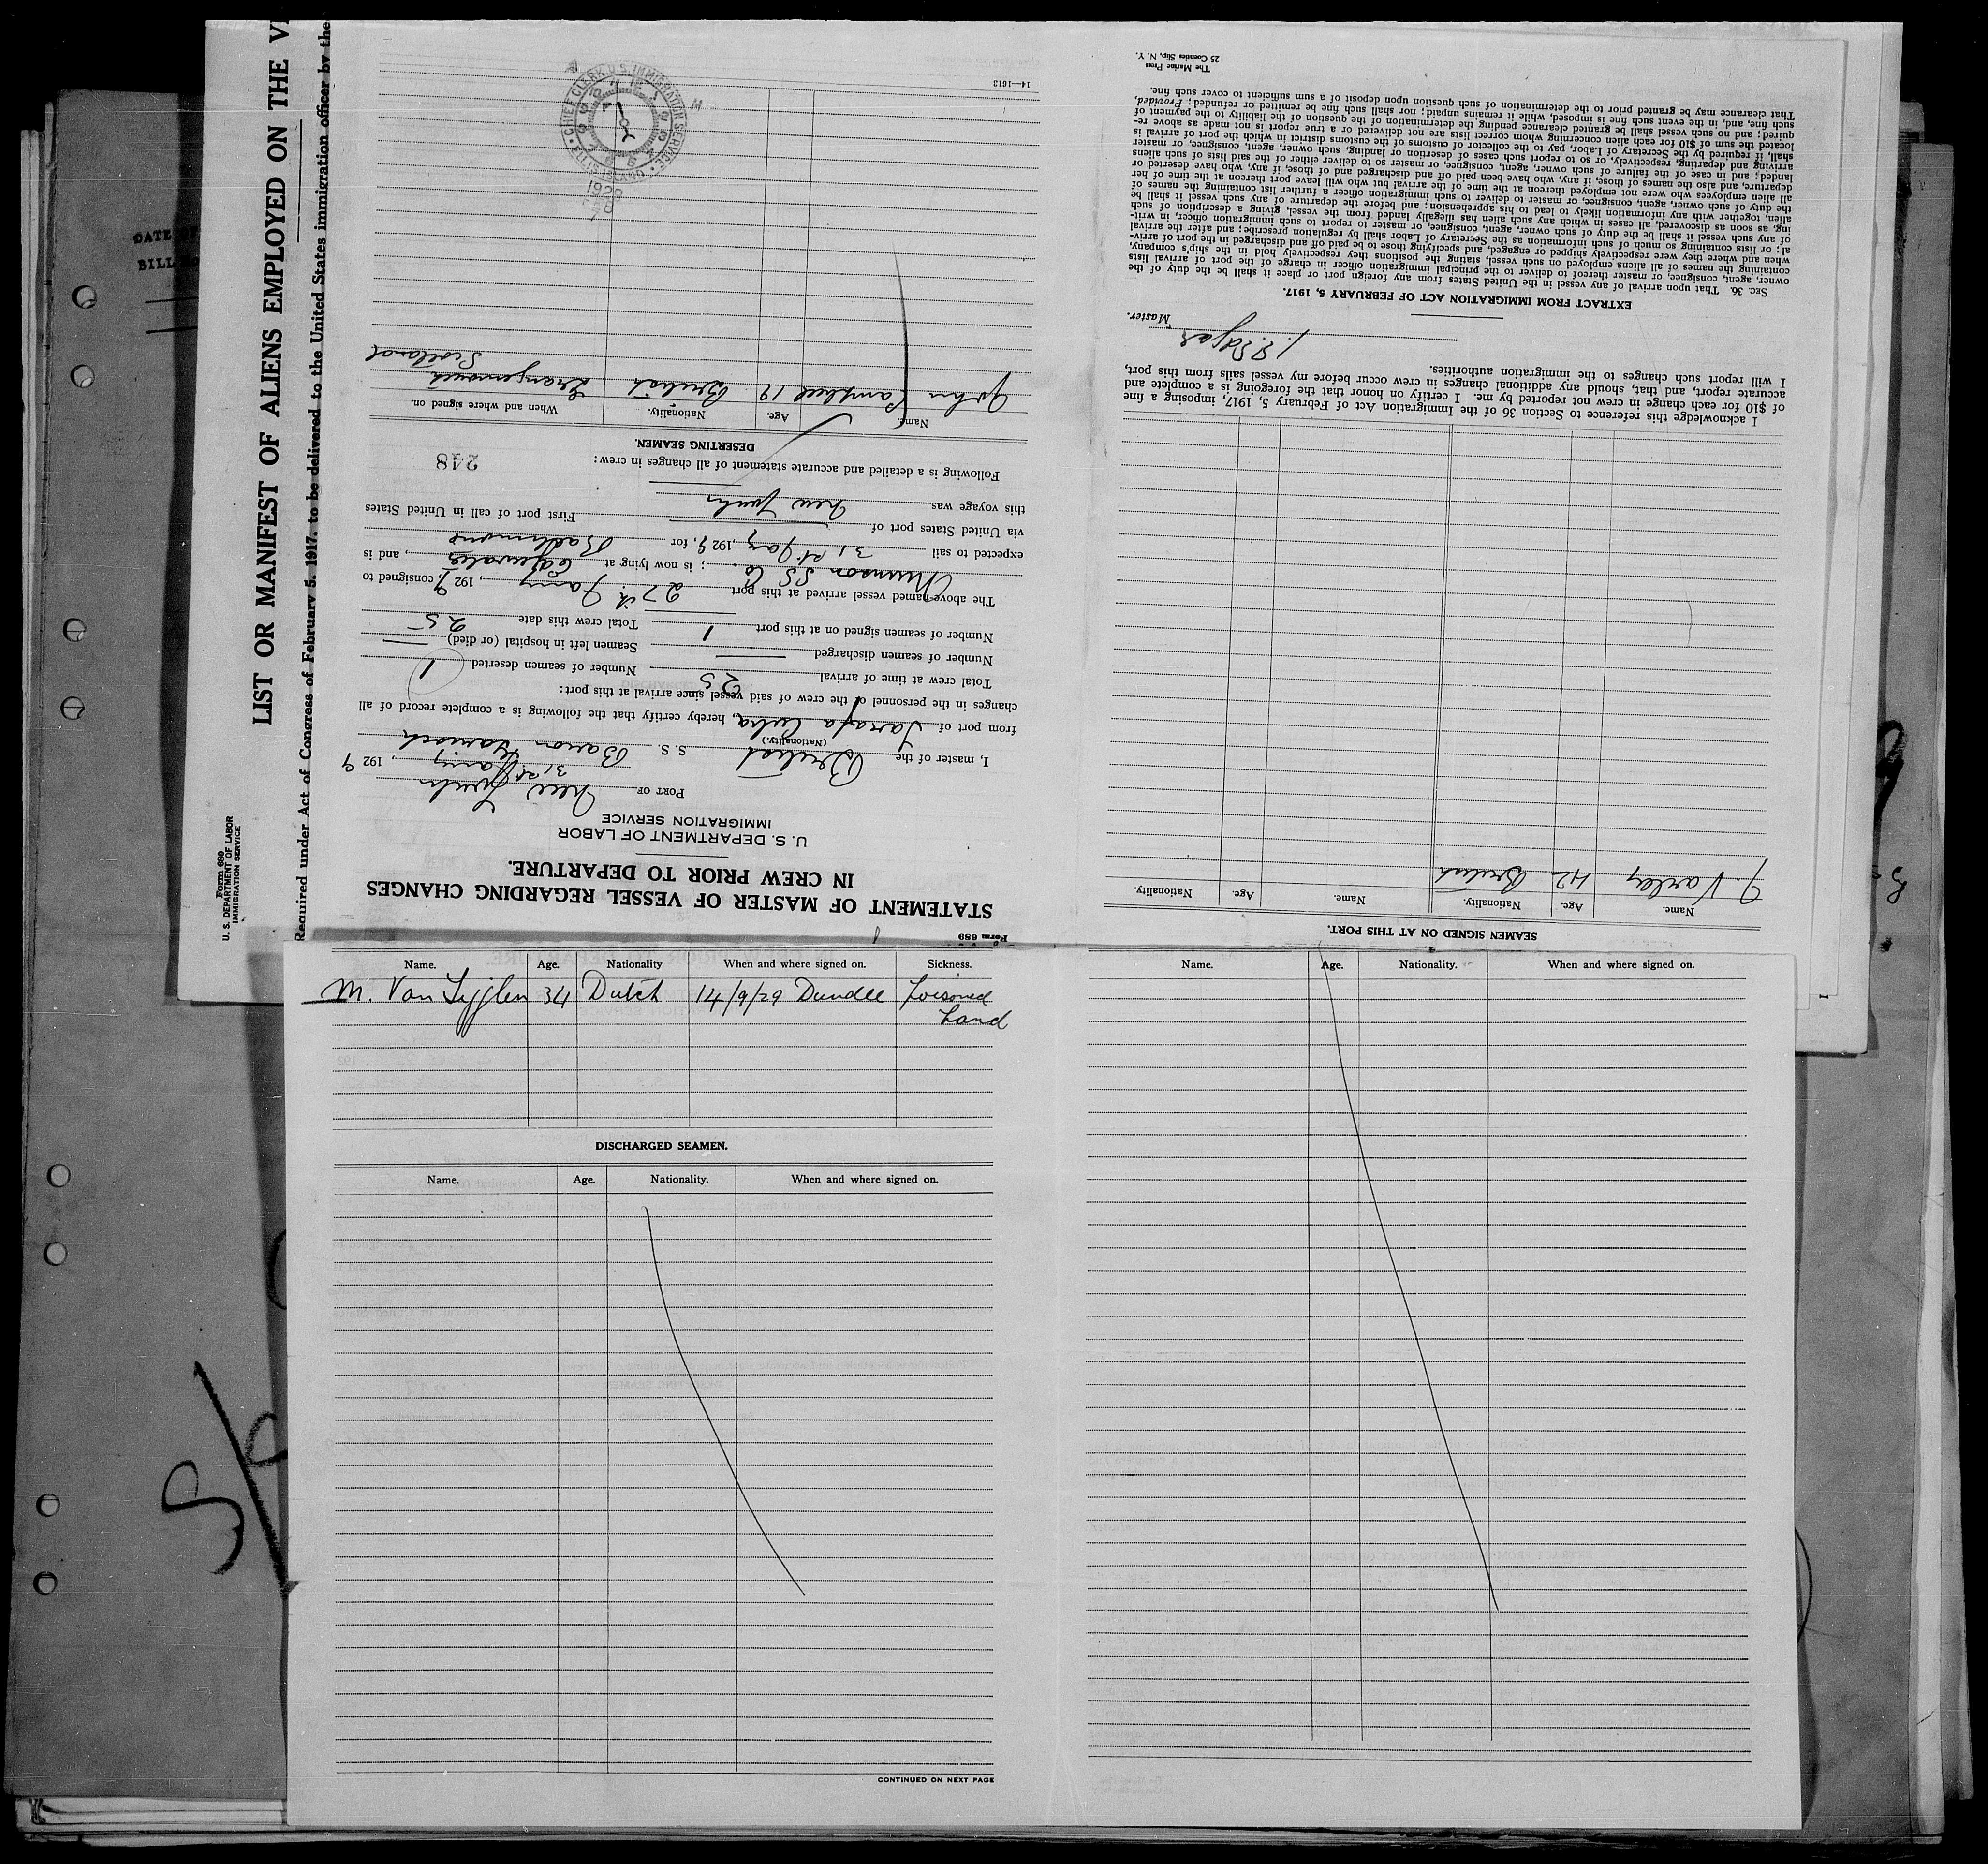 DATE OF
BILL NO
Form 680
U. S. DEPARTMENT OF LABOR
IMMIGRATION SERVICE
LIST OR MANIFEST OF ALIENS EMPLOYED ON THE
Required under Act of Congress of February 5, 1917, to be delivered to the United States immigration officer by the
Form 689
STATEMENT OF MASTER OF VESSEL REGARDING CHANGES
IN CREW PRIOR TO DEPARTURE.
U. S. DEPARTMENT OF LABOR
IMMIGRATION SERVICE
PORT OF New York
31st Jany, 1929
I, master of the British S. S. Baron
(Nationality.)
from port of Tarafa Cuba, hereby certify that the following is a complete record of all
changes in the personnel of the crew of said vessel since arrival at this port:
Total crew at time of arrival 25 Number of seamen deserted 1
Number of seamen discharged — Seamen left in hospital (or died) —
Number of seamen signed on at this port 1 Total crew this date 25
The above-named vessel arrived at this port 27th Jany, 1929, consigned to
Munson SS Co.; is now lying at Edgewater, and is
expected to sail 31st Jany, 1929, for Baltimore
via United States port of First port of call in United States
this voyage was New York
Following is a detailed and accurate statement of all changes in crew:
248
DESERTING SEAMEN.
Name. Age. Nationality. When and where signed on.
John Campbell 19 British Grangemouth
Scotland
7
1929
CHIEF CLERK U.S. IMMIGRATION SERVICE • ELLIS ISLAND •
14—1613
SEAMEN SIGNED ON AT THIS PORT.
Name. Age. Nationality. Name. Age. Nationality.
J. Varley 42 British
I acknowledge this reference to Section 36 of the Immigration Act of February 5, 1917, imposing a fine
of $10 for each change in crew not reported by me. I certify on honor that the foregoing is a complete and
accurate report, and that, should any additional changes in crew occur before my vessel sails from this port,
I will report such changes to the immigration authorities.
J. Edgar
Master.
EXTRACT FROM IMMIGRATION ACT OF FEBRUARY 5, 1917.
SEC. 36. That upon arrival of any vessel in the United States from any foreign port or place it shall be the duty of the
owner, agent, consignee, or master thereof to deliver to the principal immigration officer in charge of the port of arrival lists
containing the names of all aliens employed on such vessel, stating the positions they respectively hold in the ship's company,
when and where they were respectively shipped or engaged, and specifying those to be paid off and discharged in the port of arriv-
al; or lists containing so much of such information as the Secretary of Labor shall by regulation prescribe; and after the arrival
of any such vessel it shall be the duty of such owner, agent, consignee, or master to report to such immigration officer, in writ-
ing, as soon as discovered, all cases in which any such alien has illegally landed from the vessel, giving a description of such
alien, together with any information likely to lead to his apprehension; and before the departure of any such vessel it shall be
the duty of such owner, agent, consignee, or master to deliver to such immigration officer a further list containing the names of
all alien employees who were not employed thereon at the time of the arrival but who will leave port thereon at the time of her
departure, and also the names of those, if any, who have been paid off and discharged and of those, if any, who have deserted or
landed; and in case of the failure of such owner, agent, consignee, or master so to deliver either of the said lists of such aliens
arriving and departing, respectively, or so to report such cases of desertion or landing, such owner, agent, consignee, or master
shall, if required by the Secretary of Labor, pay to the collector of customs of the customs district in which the port of arrival is
located the sum of $10 for each alien concerning whom correct lists are not delivered or a true report is not made as above re-
quired; and no such vessel shall be granted clearance pending the determination of the question of the liability to the payment of
such fine, and, in the event such fine is imposed, while it remains unpaid; nor shall such fine be remitted or refunded; Provided,
That clearance may be granted prior to the determination of such question upon deposit of a sum sufficient to cover such fine.
The Marine Press
25 Coenties Slip, N. Y.
Name. Age. Nationality When and where signed on. Sickness.
M. Van 34 Dutch 14/9/29 Dundee Poisoned
hand
DISCHARGED SEAMEN.
Name. Age. Nationality. When and where signed on.
CONTINUED ON NEXT PAGE
Name. Age. Nationality. When and where signed on.